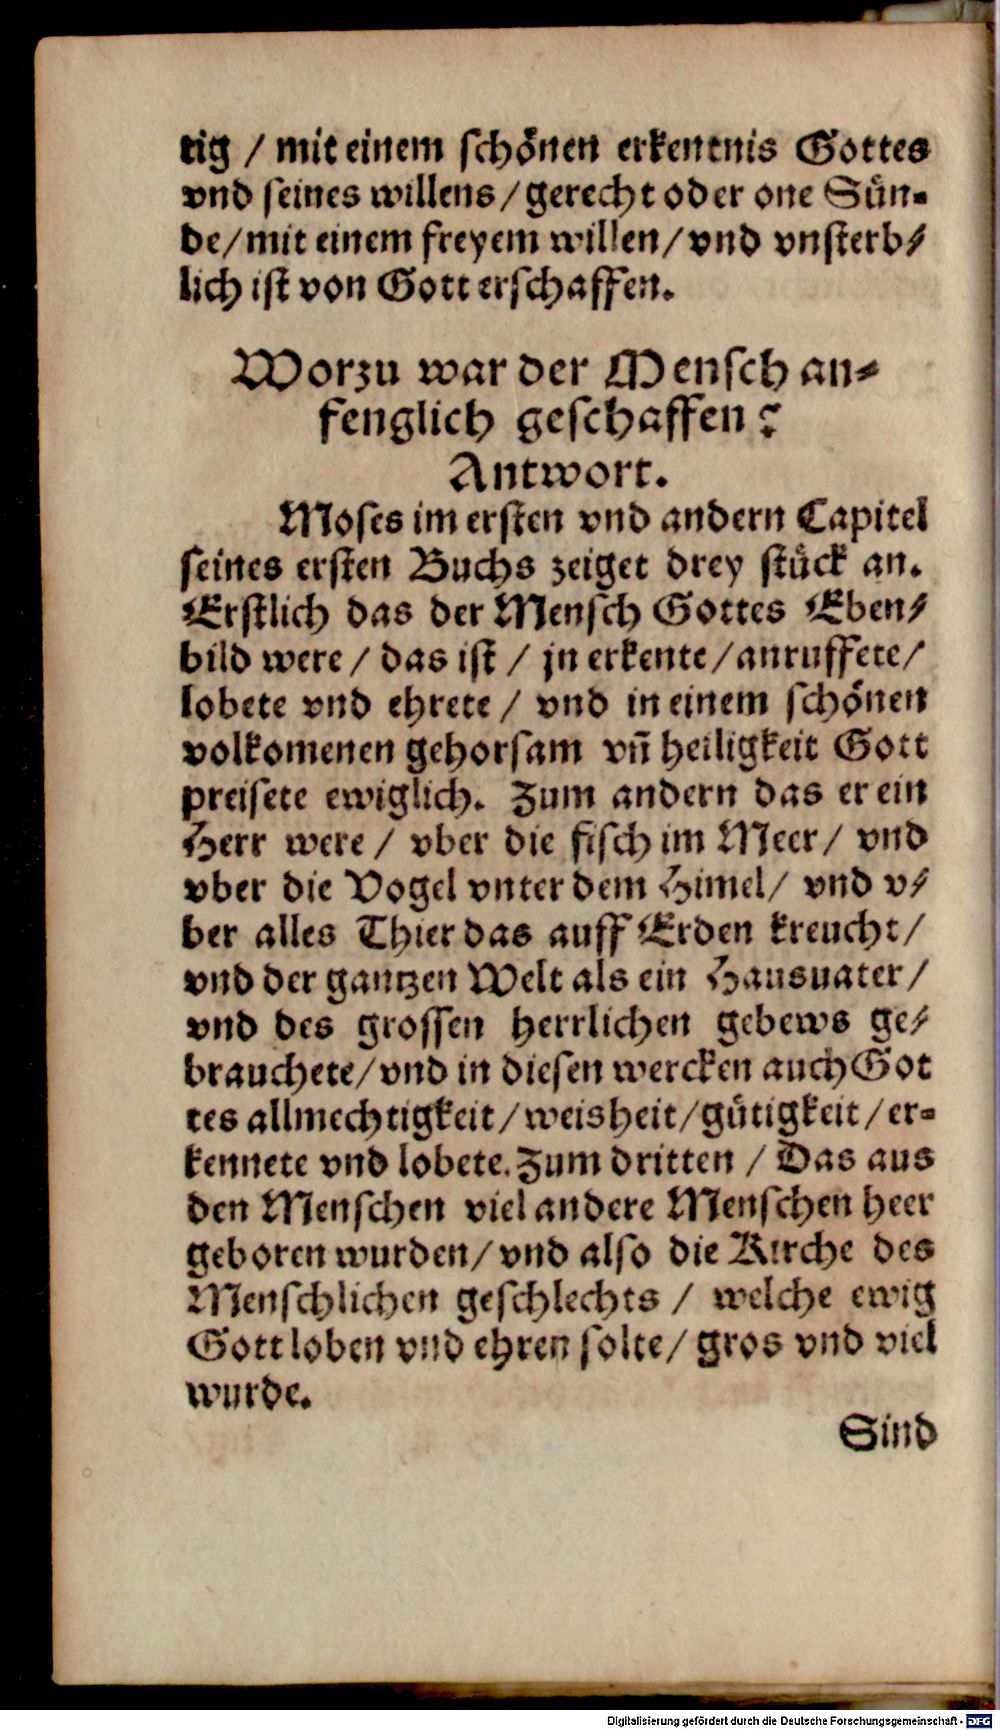 tig / mit einem schönen erkentnis Gottes
vnd seines willens / gerecht oder one Sün-
de / mit einem freyem willen / vnd vnsterb-
lich ist von Gott erschaffen.
Worzu war der Mensch an-
fenglich geschaffen?
Antwort.
Moses im ersten vnd andern Capitel
seines ersten Buchs zeiget drey stück an.
Erstlich das der Mensch Gottes Eben-
bild were / das ist / jn erkente / anruffete /
lobete vnd ehrete / vnd in einem schönen
volkomenen gehorsam vñ heiligkeit Gott
preisete ewiglich. Zum andern das er ein
Herr were / vber die fisch im Meer / vnd
vber die Vogel vnter dem Himel / vnd v-
ber alles Thier das auff Erden kreucht /
vnd der gantzen Welt als ein Hausuater /
vnd des grossen herrlichen gebews ge-
brauchete / vnd in diesen wercken auch Got
tes allmechtigkeit / weisheit / gütigkeit / er-
kennete vnd lobete. Zum dritten / Das aus
den Menschen viel andere Menschen heer
geboren wurden / vnd also die Kirche des
Menschlichen geschlechts / welche ewig
Gott loben vnd ehren solte / gros vnd viel
wurde.
Sind
Digitalisierung gefördert durch die Deutsche Forschungsgemeinschaft - DFG